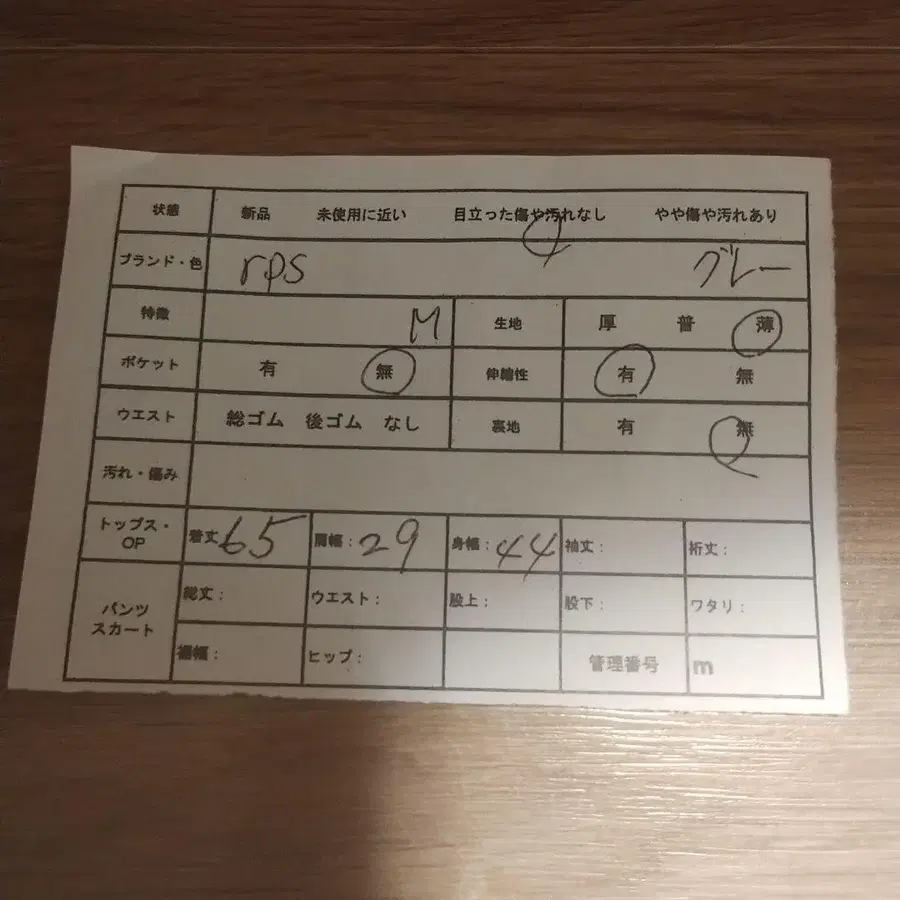 状態 新品 未使用に近い 目立った傷や汚れなし やや傷や汚れあり
ブランド・色 rps グレー
特徴 M 生地 厚 普 薄
ポケット 有 無 伸縮性 有 無
ウエスト 総ゴム 後ゴム なし 裏地 有 無
汚れ・傷み
トップス・OP 着丈65 肩幅:29 身幅:44 袖丈: 裄丈:
パンツ スカート 総丈: ウエスト: 股上: 股下: ワタリ:
裾幅: ヒップ: 管理番号 m